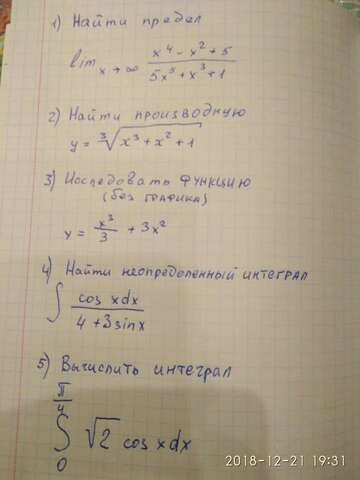 1) Найти предел
lim x → ∞ x⁴ - x² + 5 / 5x⁵ + x³ + 1
2) Найти производную
y = ∛(x³ + x² + 1)
3) Исследовать функцию
(без графика)
y = x³/3 + 3x²
4) Найти неопределенный интеграл
∫ cos xdx / 4 + 3sinx
5) Вычислить интеграл
π/4
∫ √2 cos xdx
0
2018-12-21 19:31